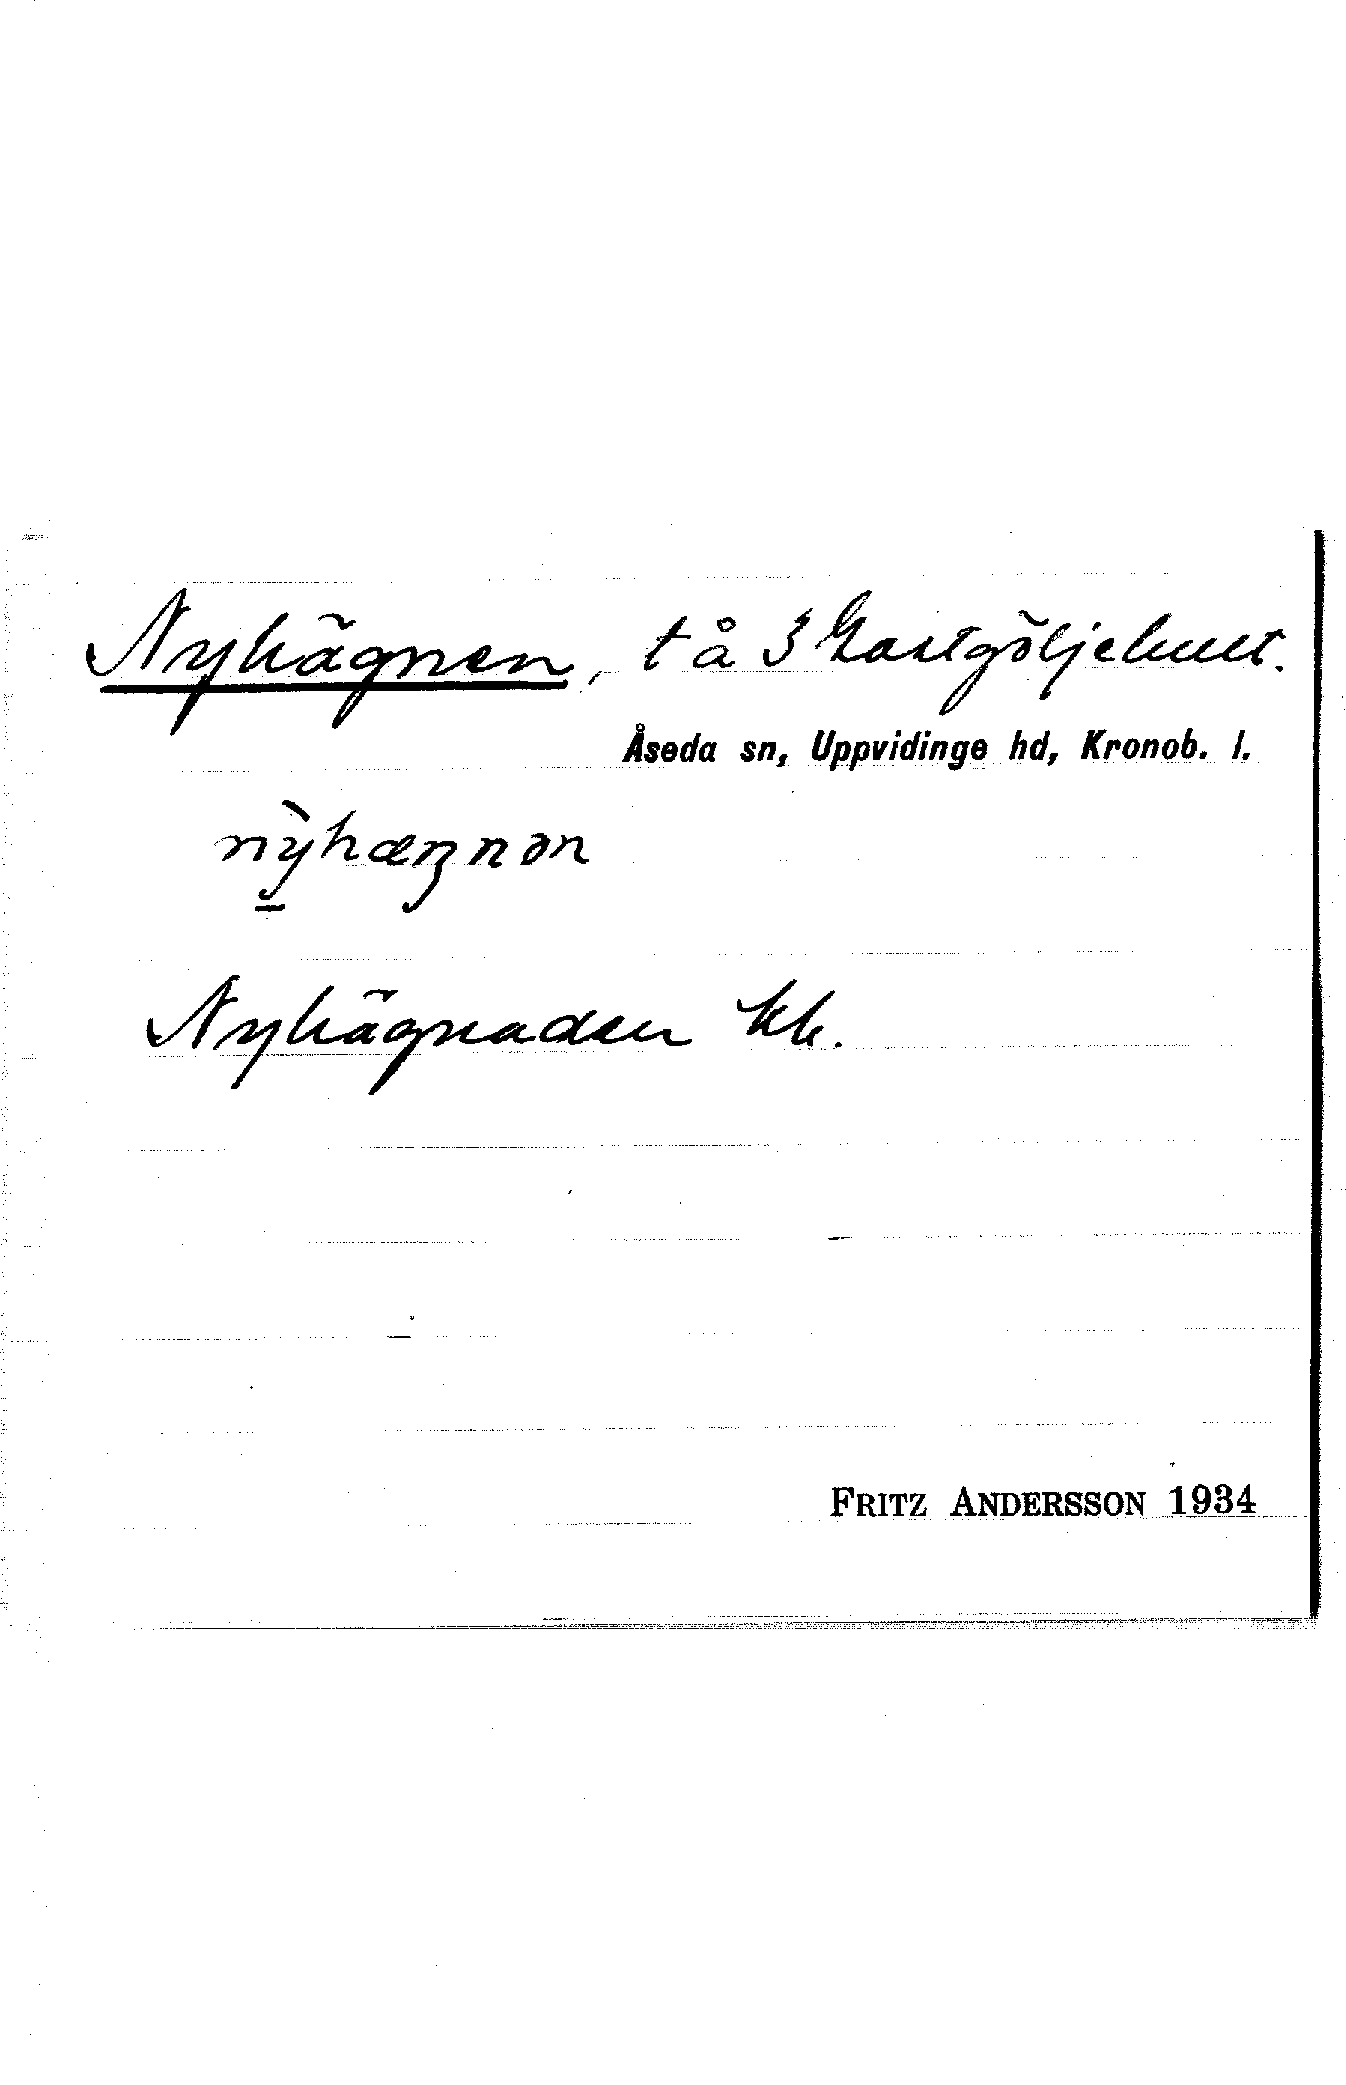 Nyhägnen, tå 3 Gastgöljehult.
Åseda sn, Uppvidinge hd, Kronob. l.
nỳhæŋnən
Nyhägnaden kk.
FRITZ ANDERSSON 1934